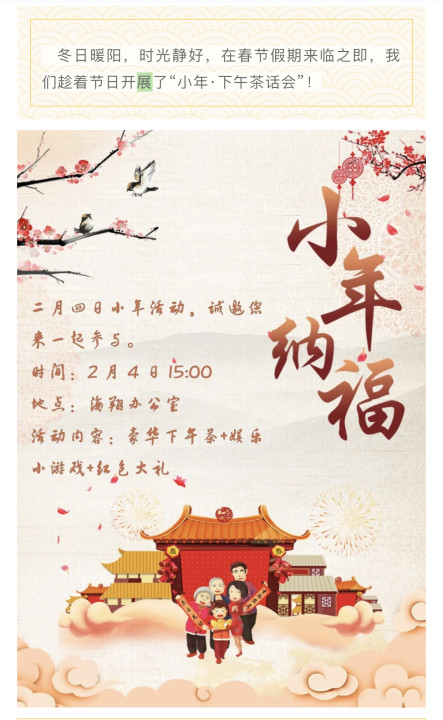 冬日暖阳，时光静好，在春节假期来临之即，我
们趁着节日开展了“小年·下午茶话会”！
小年纳福
二月四日小年活动，诚邀您
来一起参与。
时间：2月4日15:00
地点：海翔办公室
活动内容：豪华下午茶+娱乐
小游戏+红色大礼